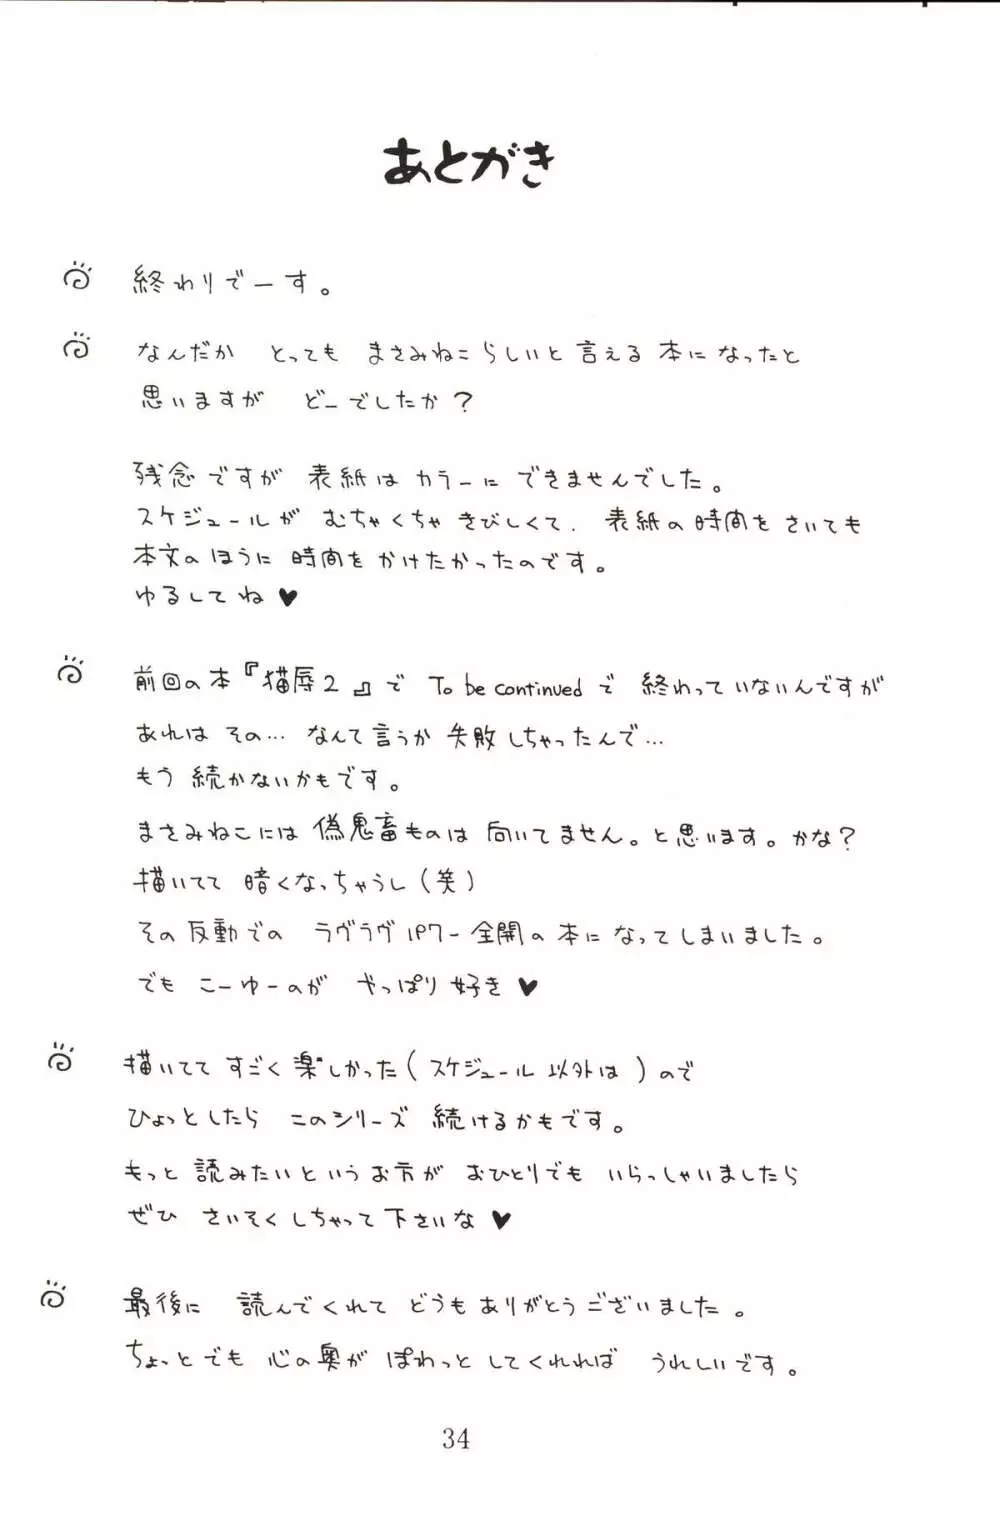 あとがき
終わりでーす。
なんだか とっても まさみねこらしいと言える本になったと
思いますが どーでしたか？
残念ですが 表紙はカラーにできませんでした。
スケジュールが むちゃくちゃ きびしくて、表紙の時間をさいても
本文のほうに時間をかけたかったのです。
ゆるしてね♥
前回の本『猫辱2』で To be continuedで 終わっていないんですが
あれは その… なんて言うか 失敗しちゃったんで…
もう 続かないかもです。
まさみねこには 偽鬼畜ものは 向いてません。と思います。かな？
描いてて 暗くなっちゃうし（笑）
その反動での ラヴラヴパワー全開の本になってしまいました。
でも こーゆーのが やっぱり好き♥
描いてて すごく楽しかった（スケジュール以外は）ので
ひょっとしたら このシリーズ 続けるかもです。
もっと 読みたいというお方が おひとりでも いらっしゃいましたら
ぜひ さいそくしちゃって下さいな♥
最後に 読んでくれて どうもありがとうございました。
ちょっとでも 心の奥が ぽわっと してくれれば うれしいです。
34